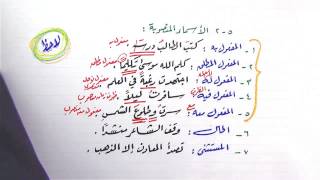 لاحظ
٢-٥ الأسماء المنصوبة:
١- المفعول به: كتب الطالب درسه مفعول به
٢- المفعول المطلق: كلم الله موسى تكليما مفعول مطلق
٣- المفعول له: اجتهدت رغبة في العلم
٤- المفعول فيه: سافرت ليلا
٥- المفعول معه: سرت وطلوع الشمس
٦- الحال: وقف الشاعر منشدا.
٧- المستثنى: تصدأ المعادن إلا الذهب.